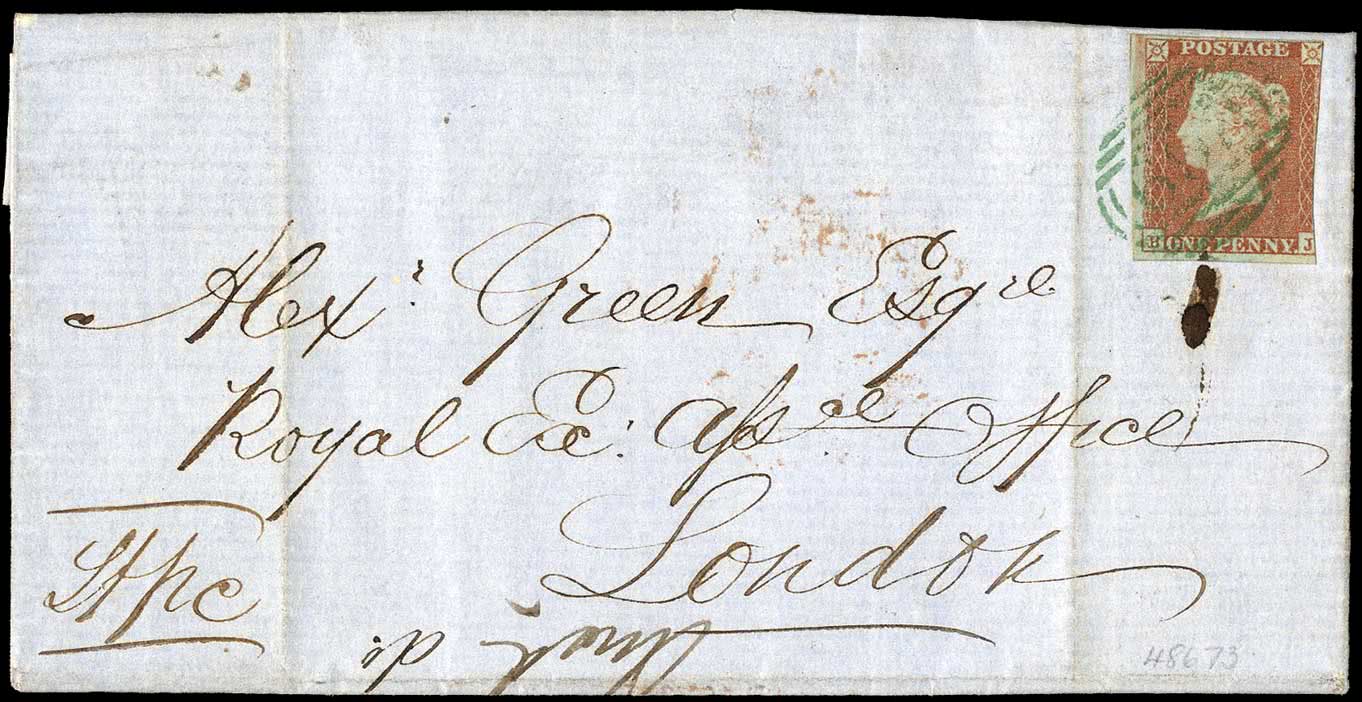 POSTAGE
B ONE PENNY J
Alexr. Green Esqre.
Royal Ex: Assce Office
London
Stpd
48673